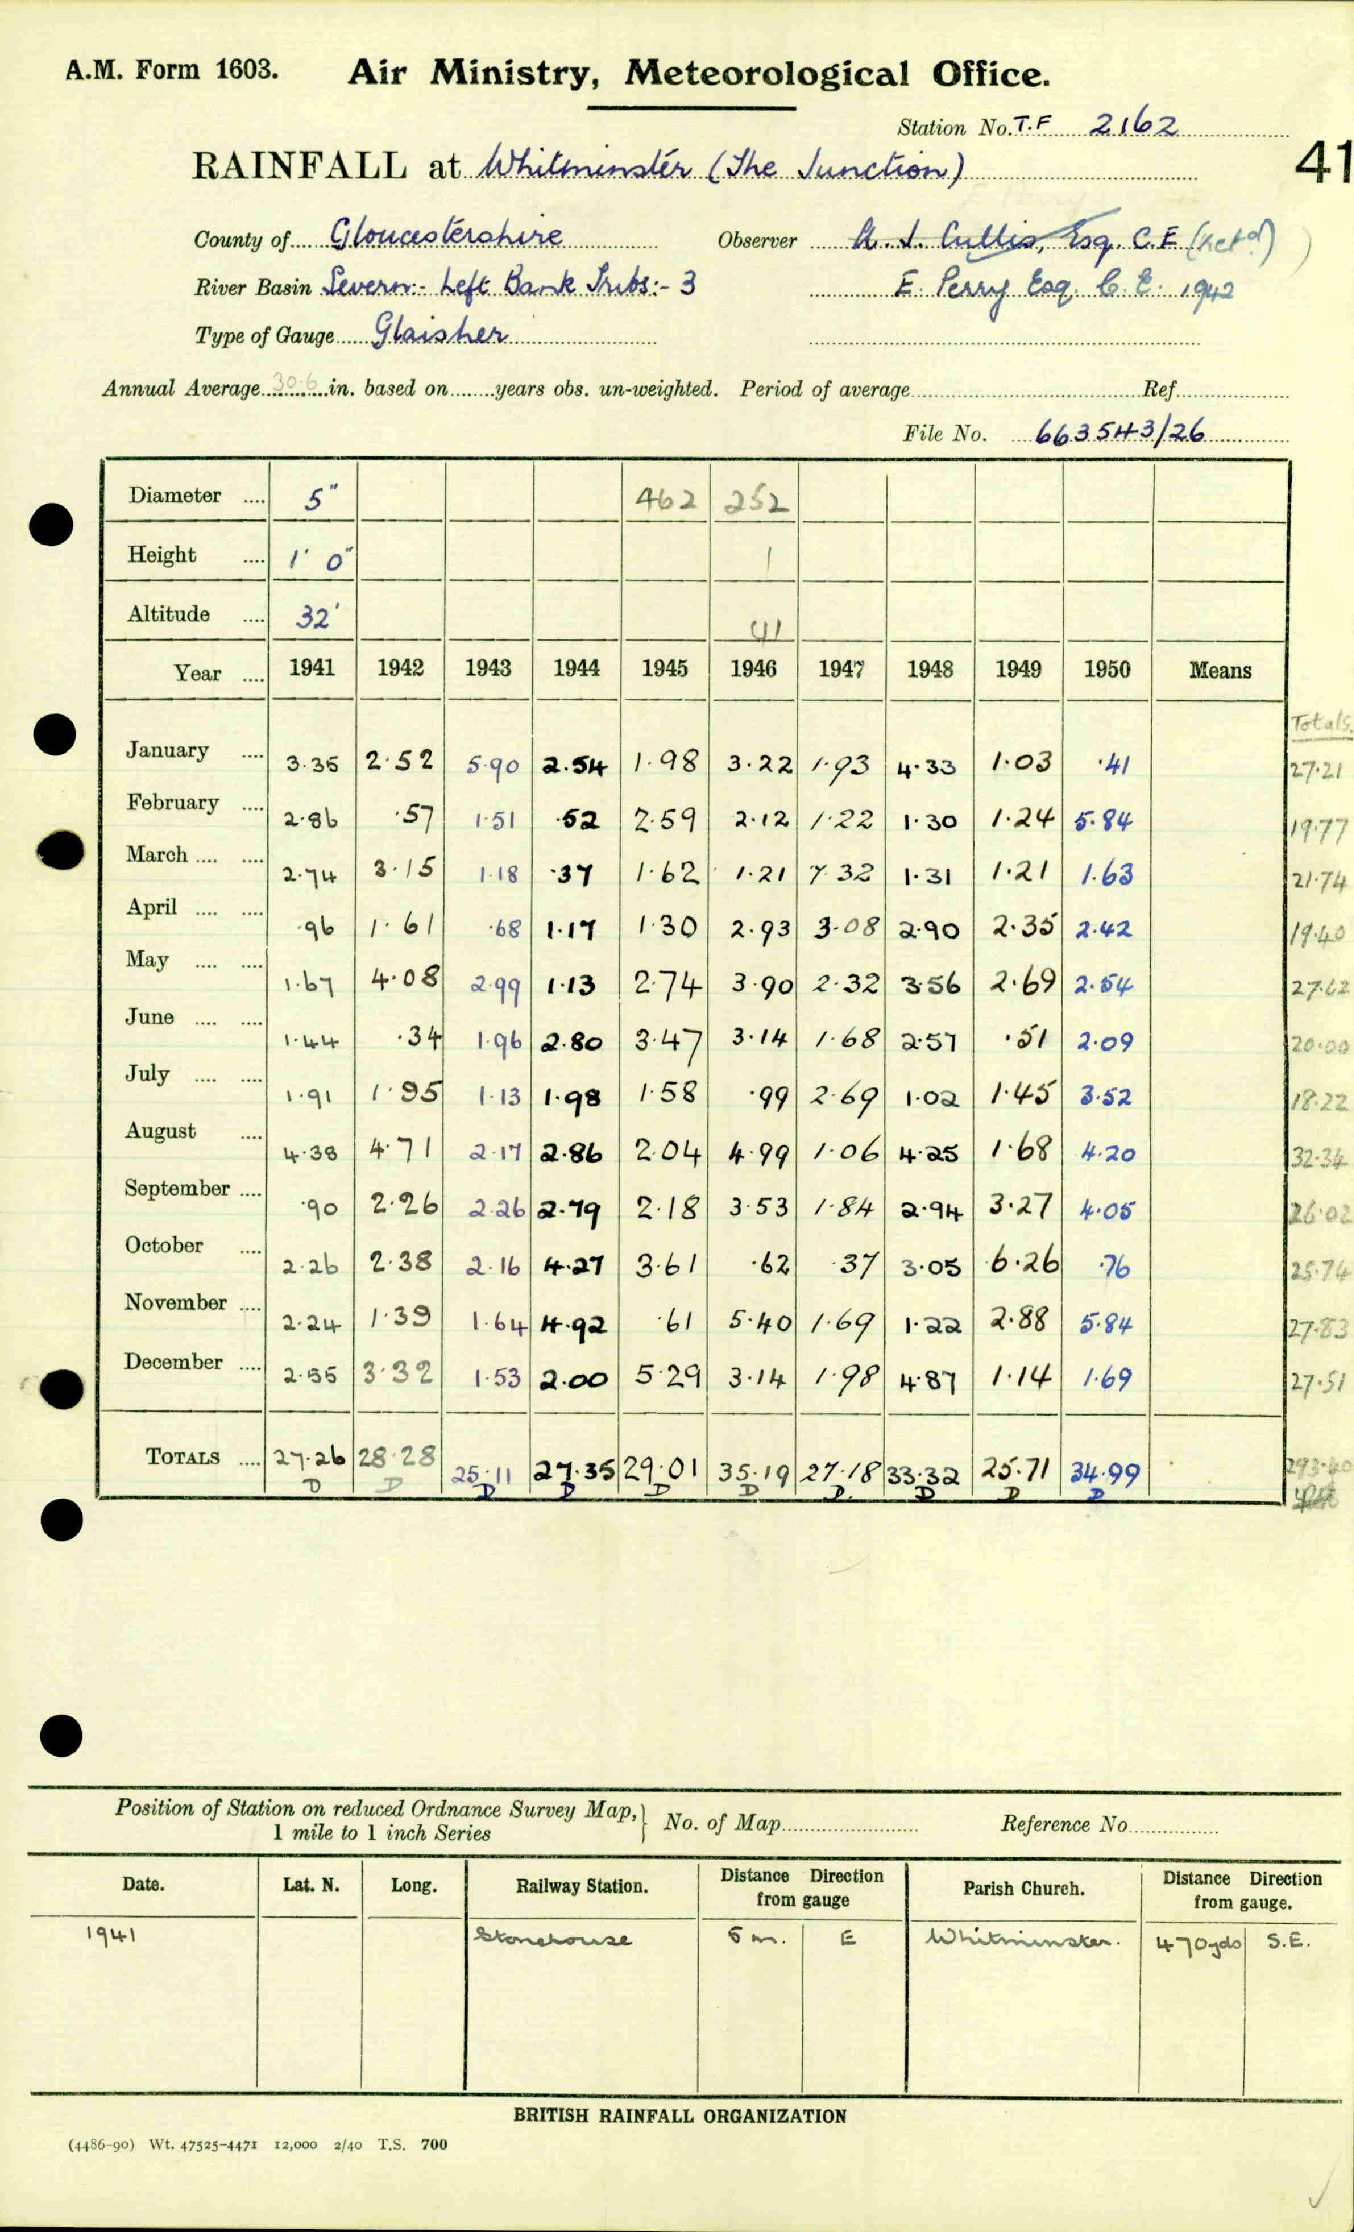 A.M. Form 1603. Air Ministry, Meteorological Office.
Station No. T.F 2162
41
RAINFALL at Whitminster (The Junction)
County of Gloucestershire Observer A. J. Cullis, Esq. C.E (Retd)
River Basin Severn:- Left Bank Tribs:- 3 E. Perry Esq. C.E. 1942
Type of Gauge Glaisher
Annual Average 30.6 in. based on years obs. un-weighted. Period of average Ref.
File No. 663543/26
Diameter 5" 462 252
Height 1' 0" 1
Altitude 32' 41
Year 1941 1942 1943 1944 1945 1946 1947 1948 1949 1950 Means
Totals.
January 3.35 2.52 5.90 2.54 1.98 3.22 1.93 4.33 1.03 .41 27.21
February 2.86 .57 1.51 .52 2.59 2.12 1.22 1.30 1.24 5.84 19.77
March 2.74 3.15 1.18 .37 1.62 1.21 7.32 1.31 1.21 1.63 21.74
April .96 1.61 .68 1.17 1.30 2.93 3.08 2.90 2.35 2.42 19.40
May 1.67 4.08 2.99 1.13 2.74 3.90 2.32 3.56 2.69 2.54 27.62
June 1.44 .34 1.96 2.80 3.47 3.14 1.68 2.57 .51 2.09 20.00
July 1.91 1.95 1.13 1.98 1.58 .99 2.69 1.02 1.45 3.52 18.22
August 4.38 4.71 2.17 2.86 2.04 4.99 1.06 4.25 1.68 4.20 32.34
September .90 2.26 2.26 2.79 2.18 3.53 1.84 2.94 3.27 4.05 26.02
October 2.26 2.38 2.16 4.27 3.61 .62 .37 3.05 6.26 .76 25.74
November 2.24 1.39 1.64 4.92 .61 5.40 1.69 1.22 2.88 5.84 27.83
December 2.55 3.32 1.53 2.00 5.29 3.14 1.98 4.87 1.14 1.69 27.51
TOTALS 27.26 28.28 25.11 27.35 29.01 35.19 27.18 33.32 25.71 34.99 293.40
D D D D D D D. D D D
Position of Station on reduced Ordnance Survey Map, 1 mile to 1 inch Series } No. of Map Reference No
Date. Lat. N. Long. Railway Station. Distance Direction from gauge Parish Church. Distance Direction from gauge.
1941 Stonehouse 5 m. E Whitminster. 470yds S.E.
BRITISH RAINFALL ORGANIZATION
(4486-90) Wt. 47525-4471 12,000 2/40 T.S. 700